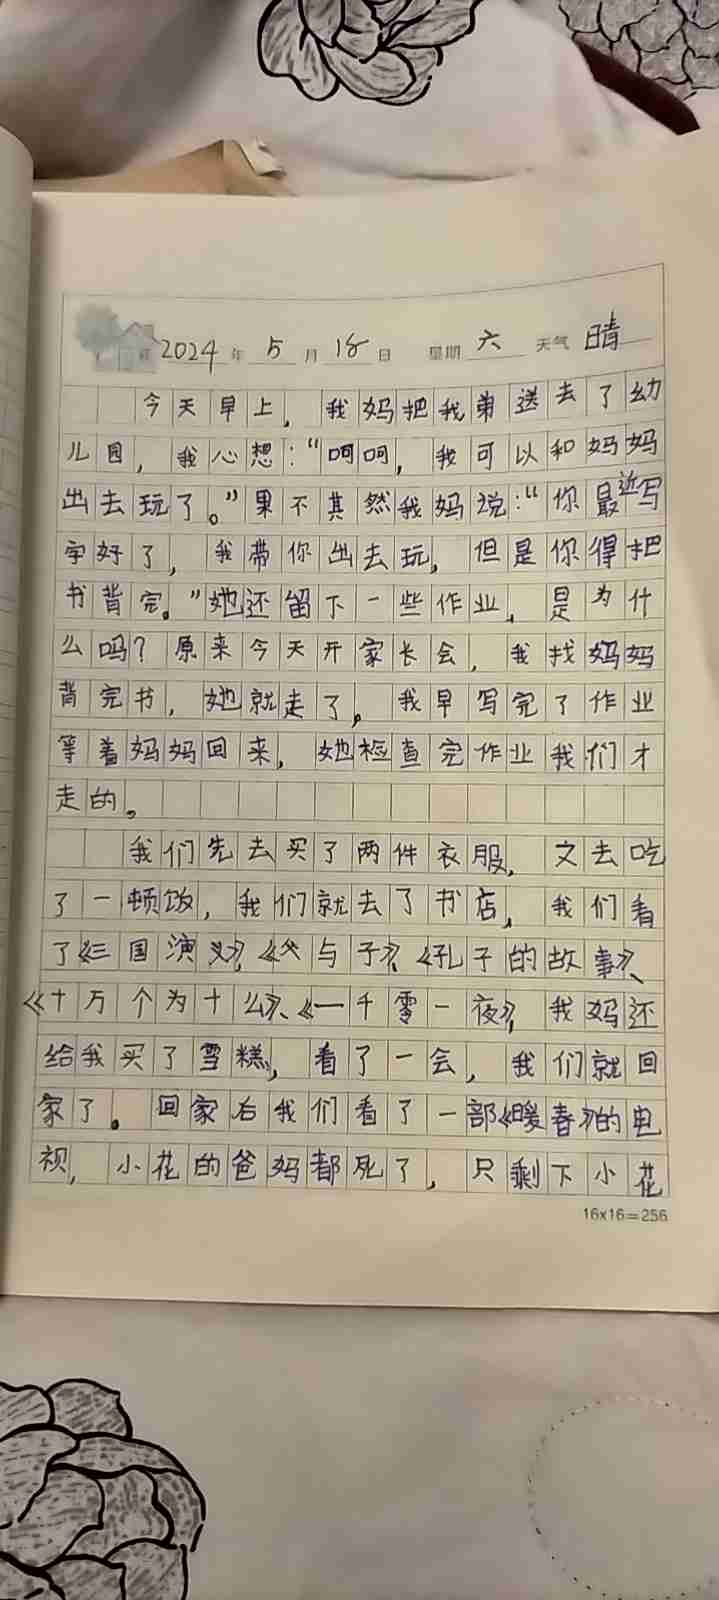 2024年5月18日 星期六 天气晴
今天早上，我妈把我弟送去了幼
儿园，我心想：“呵呵，我可以和妈妈
出去玩了。”果不其然我妈说：“你最近写
字好了，我带你出去玩，但是你得把
书背完。”她还留下一些作业，是为什
么吗？原来今天开家长会，我找妈妈
背完书，她就走了。我早写完了作业
等着妈妈回来，她检查完作业我们才
走的。
我们先去买了两件衣服，又去吃
了一顿饭，我们就去了书店，我们看
了《三国演义》、《父与子》、《孔子的故事》、
《十万个为十么》、《一千零一夜》，我妈还
给我买了雪糕，看了一会，我们就回
家了。回家后我们看了一部《暖春》的电
视，小花的爸妈都死了，只剩下小花
16x16=256